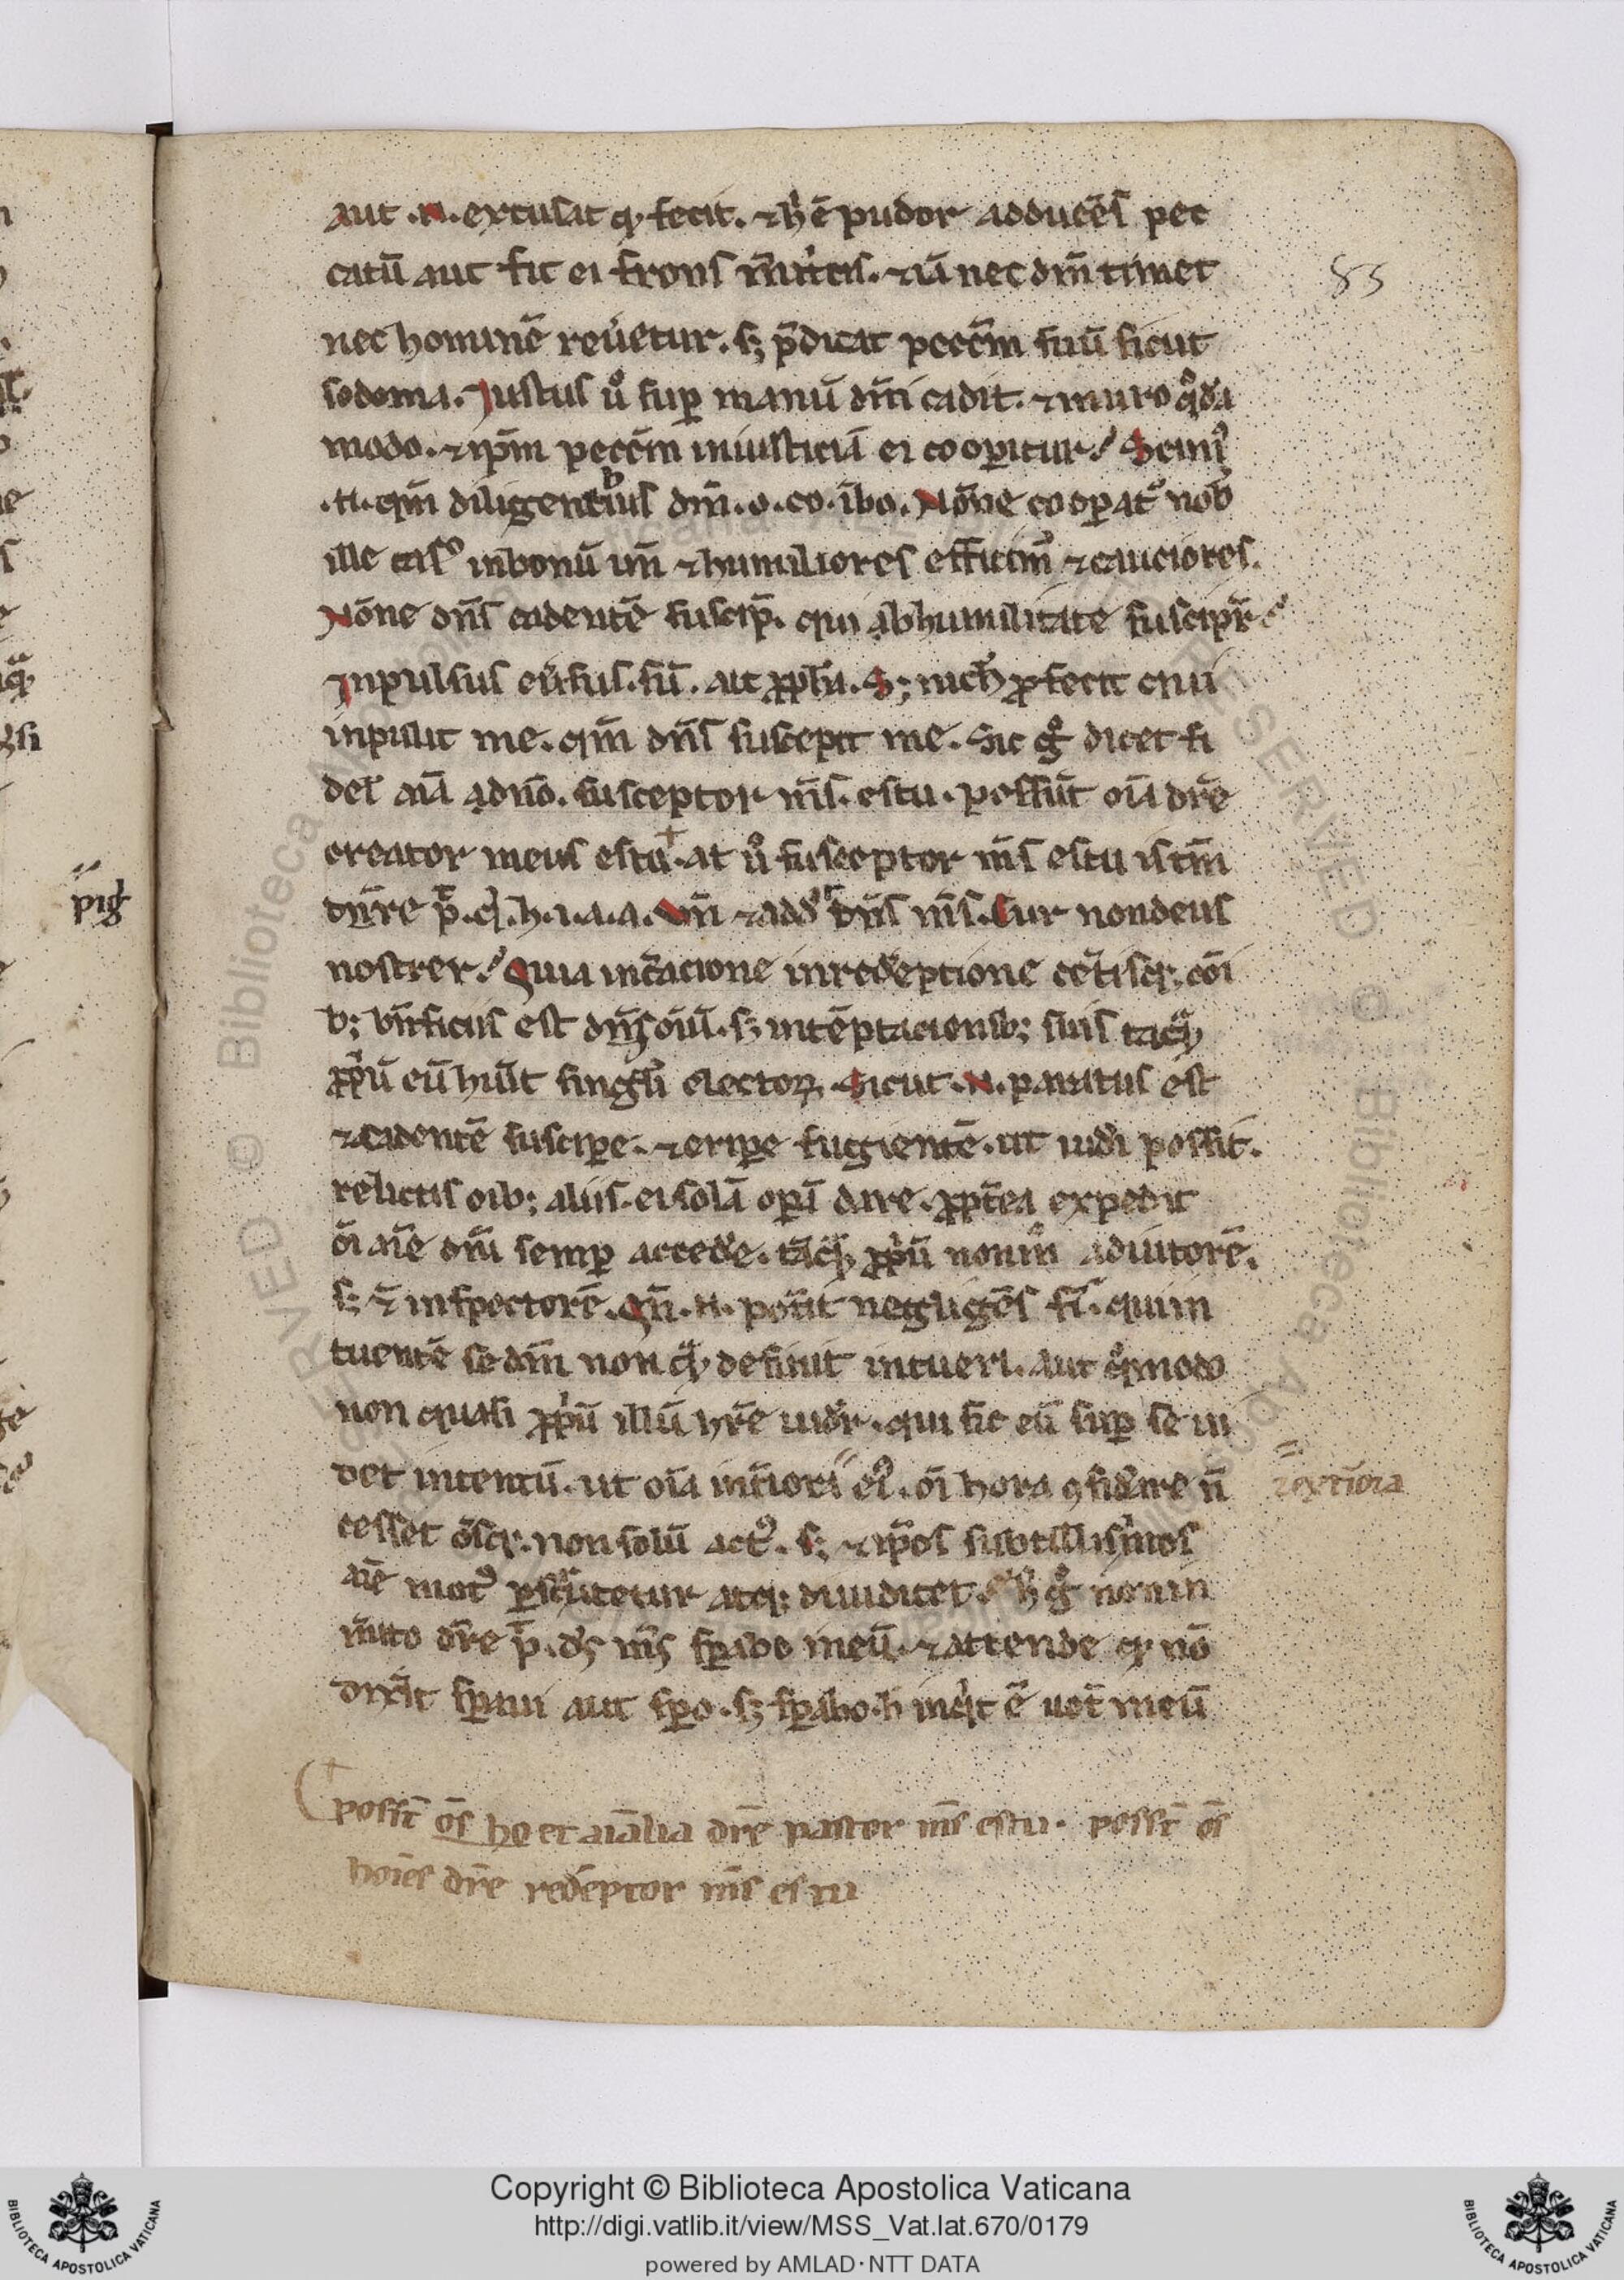 aut .n. excusat q̇ fecit. ⁊ h̓ ē pudor adducēs pec
catū aut fit ei frons m̄et̓cis. ⁊ iā nec dm̄ timet
nec hominē reu̓etur. sꝫ p̄dicat pecc̄m suū sicut
sodoma. Justus u̓o sup̱ manū dn̄i cadit. ⁊ miro qͦdā
modo. ⁊ ip̄m pecc̄m iniusticiā ei coop̱atur. Scim᾿
.n. qm̄ diligentibus dm̄ .o. co. ī bo. Nōne coop̱at᾿ nob̄
ille cas᾿ in bonū un̄ ⁊ humiliores efficim᾿ ⁊ cauciores.
Nōne dn̄s cadentē suscip̄. qui ab humilitate suscipr̄
Jnpulsus eu̓sus. sū. ait ꝓph̄a. Sꝫ nich̓ ꝓfecit qui
inpulit me. qm̄ dn̄s suscepit me. Sic g̊ dicet fi
del̄ aīa ad dn̄o. susceptor m̄s. es tu. possūt oīa dr̄e
creator meus es tu. at u̓o susceptor m̄s es tu istm̄
dr̄e p̄. q̇. h. i. a. a. Un̄ ⁊ add᾿ dn̄s m̄s. Cur non deus
noster. Quia in c̄acione in redēptione cet̓isq; cōi
b; bn̄ficiis est dn̄s oīu̅. sꝫ in tēptacionib; suis tāq̄ꝫ
ꝓp̓ū eū hn̄t singl̓i electoꝝ. Sicut .N. paratus est
⁊ cadentē suscip̱e. ⁊ erip̱e fugientē. ut uid̓i possit.
relictis oīb; aliis. ei solā op̱ā dare. ꝓpt̄ea expedit
ōi aīe dm̄ semp̱ acced̓e. tāq̄ꝫ ꝓp̓ū non m̊ adiutorē.
sꝫ ⁊ inspectorē. Qn̄ .n. pot̓it negligēs f̄i. qui in
tuentē se dm̄ non q̄ꝫ desinit intueri. aut qͦmodo
non quasi ꝓp̓ū illū hr̄e uid̓r. qui sic eū sup̱ se ui
det intentū. ut oīa int̄iora ei᾿. oī hora ꝯsid̓are n̄
⁊ ext̄iora
cesset ōsq;. non solū act᾿. sꝫ ⁊ ip̄os subtillissimos
aīe mot᾿ p̱scrutetur atq; diiudicet. h̓ g̊ non in
m̄ito dr̄e p̄. ds̄ m̄s sp̱abo in eū. ⁊ attende q̇ nō
dix̄it sp̱aui aut sp̱o. sꝫ sp̱abo. h̓ inq̓t ē uot̄ meū
poss̄t ōs ho et aīalia dr̄e pastor m̄s es tu. poss̄t ōs
hoīes dr̄e redēptor m̄s es tu
85
pig̓
Copyright © Biblioteca Apostolica Vaticana
http://digi.vatlib.it/view/MSS_Vat.lat.670/0179
powered by AMLAD·NTT DATA
BIBLIOTECA APOSTOLICA VATICANA
BIBLIOTECA APOSTOLICA VATICANA